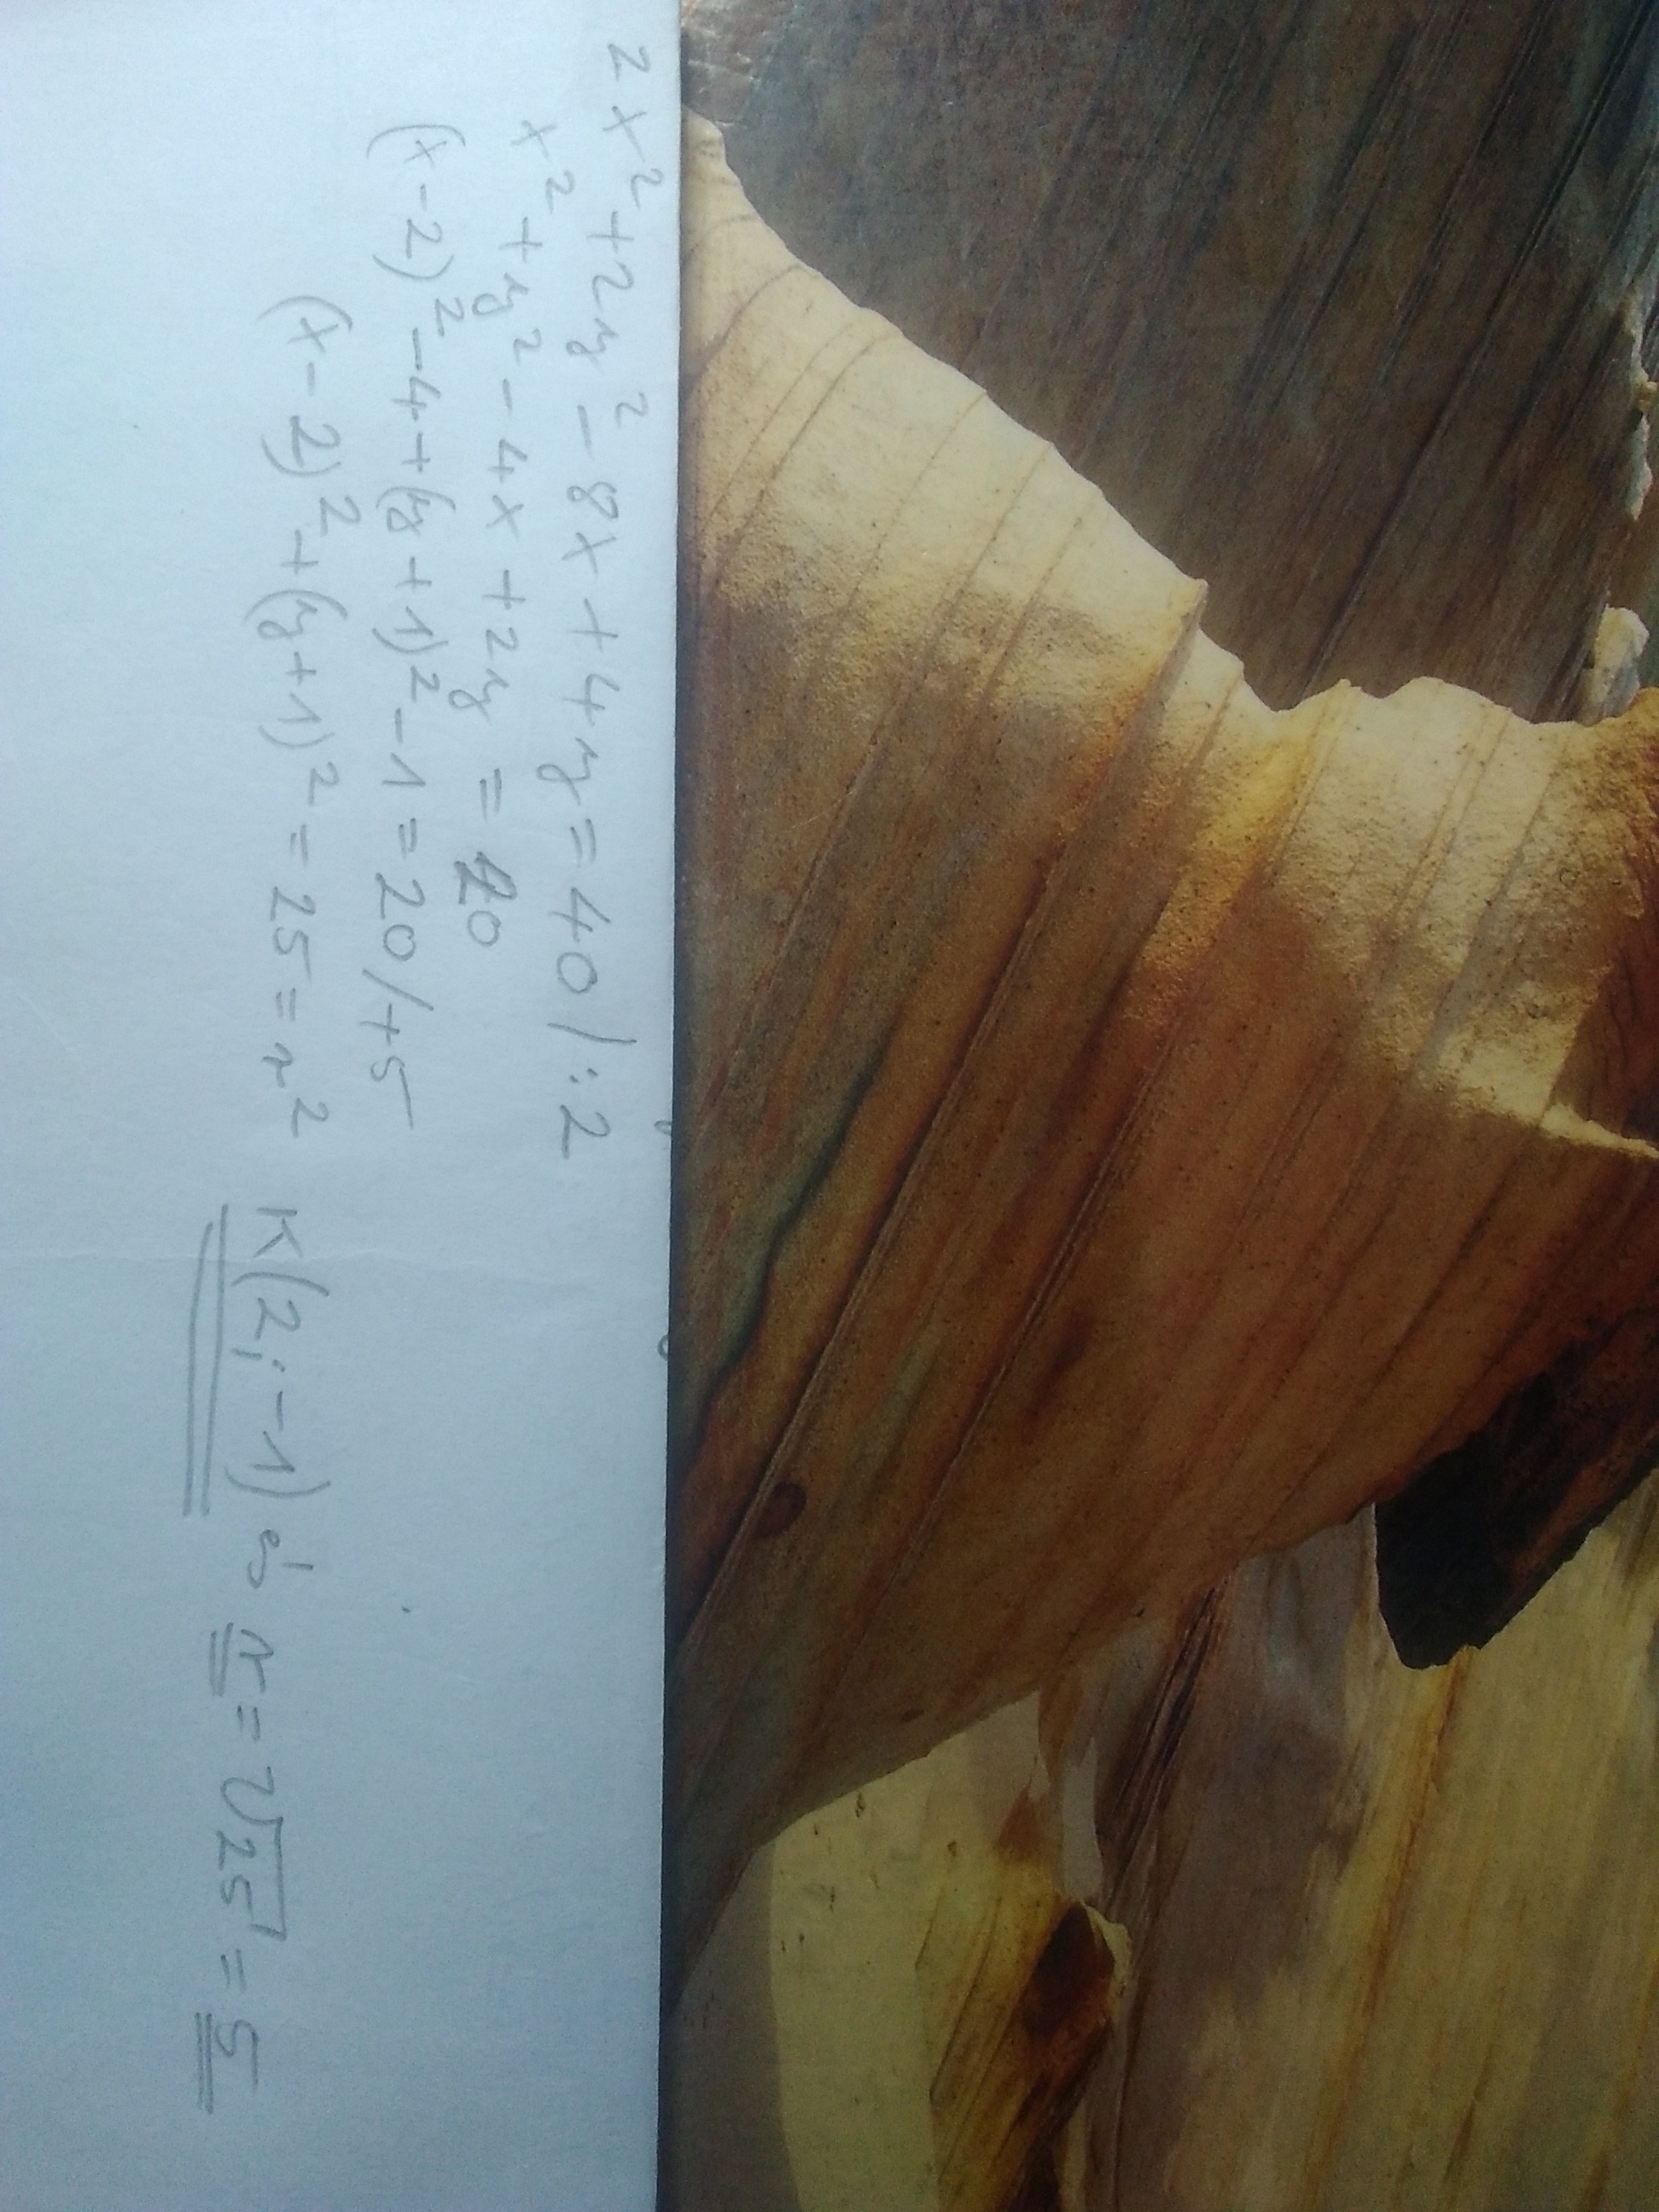 2x² + 2y² - 8x + 4y = 40 / : 2
x² + y² - 4x + 2y = 20
(x - 2)² - 4 + (y + 1)² - 1 = 20 / +5
(x - 2)² + (y + 1)² = 25 = r² K(2; -1) és r = √25 = 5